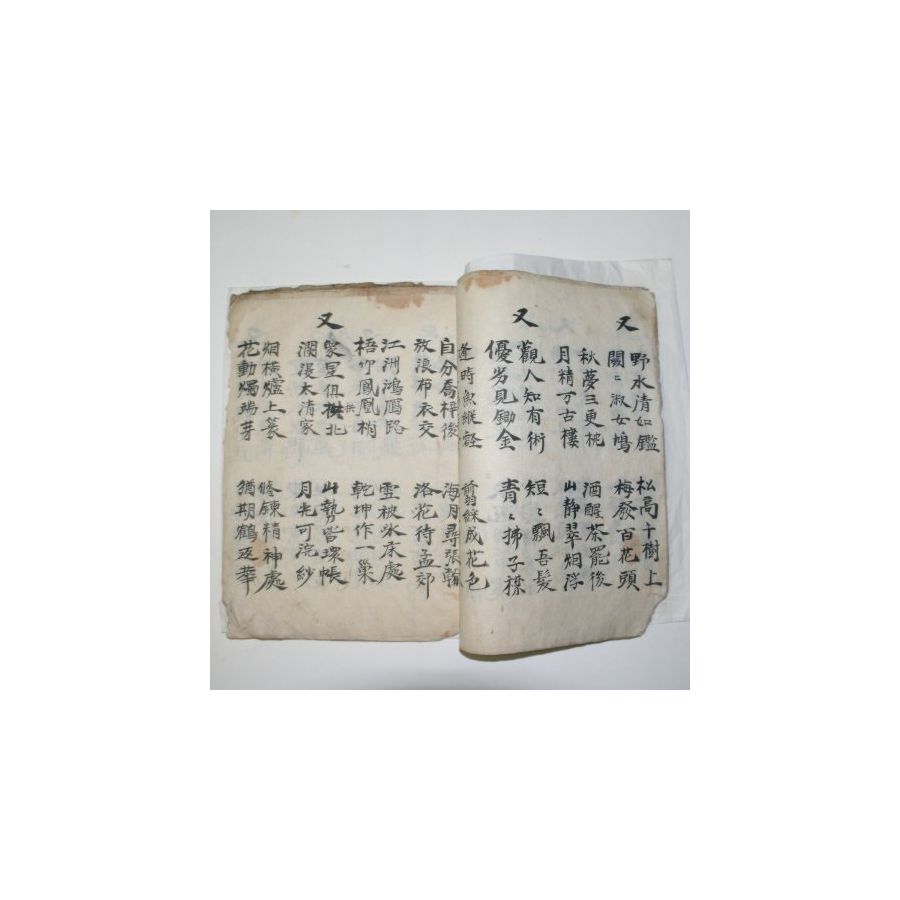 又
野水清如鑑 松高千樹上
關〻淑女鳩 梅發百花頭
秋夢三更枕 酒醒茶罷後
月精万古樓 山靜翠烟浮
又
觀人知有術 短〻飄吾髮
優劣見鋤金 青〻拂子襟
逢時魚縱壑 剪綵成花色
自分喬梓後 海月尋張翰
放浪布衣交 洛花待孟郊
江洲鴻鴈路 雲被氷床處
梧竹鳳凰梢 乾坤作一巢
又
象星俱拱北 山勢皆環帳
瀾漫太清家 月光可浣紗
烟橫爐上篆 修鍊精神處
花動燭瑞芽 猶期鶴返華